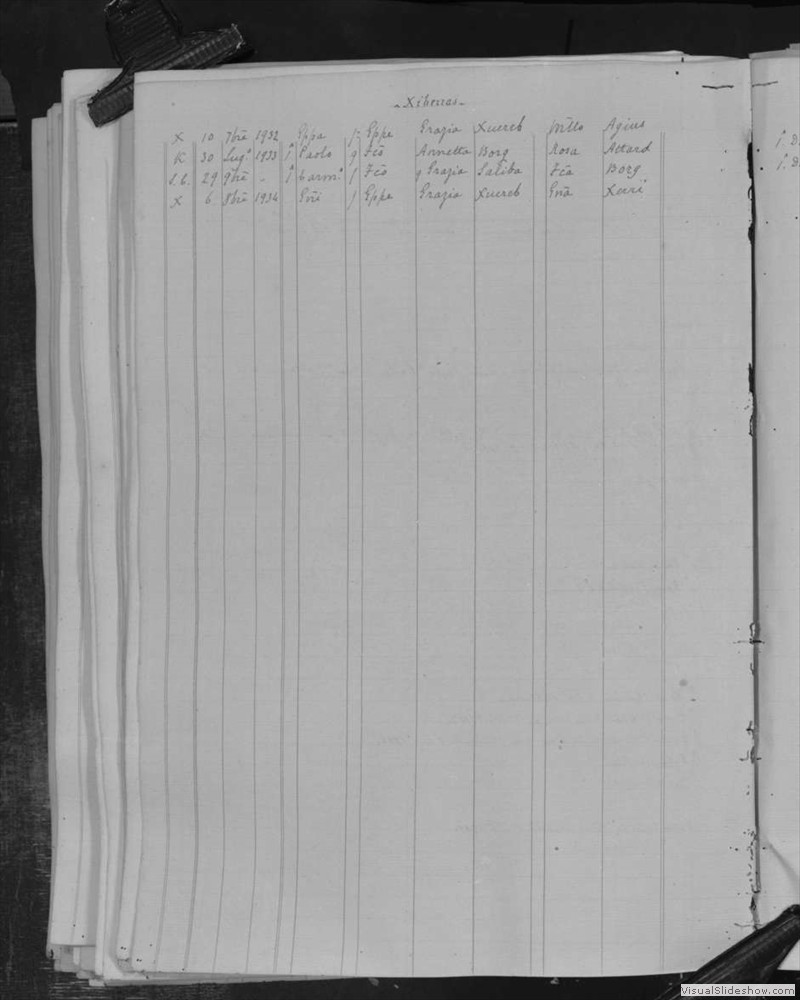 - Xiberras -
X 10 7bre 1932 Gppa f: Gppe Grazia Xuereb Agius
K 30 Lugo 1933 1° Paolo q Fco Annetta Borg Rosa Attard
S.C. 29 9bre " 1° Carmo f Fco q Grazia Saliba Fca Borg
X 6 8bre 1934 Gni f Gppe Grazia Xuereb Gna Xerri
1. D.
1. D.
VisualSlideshow.com